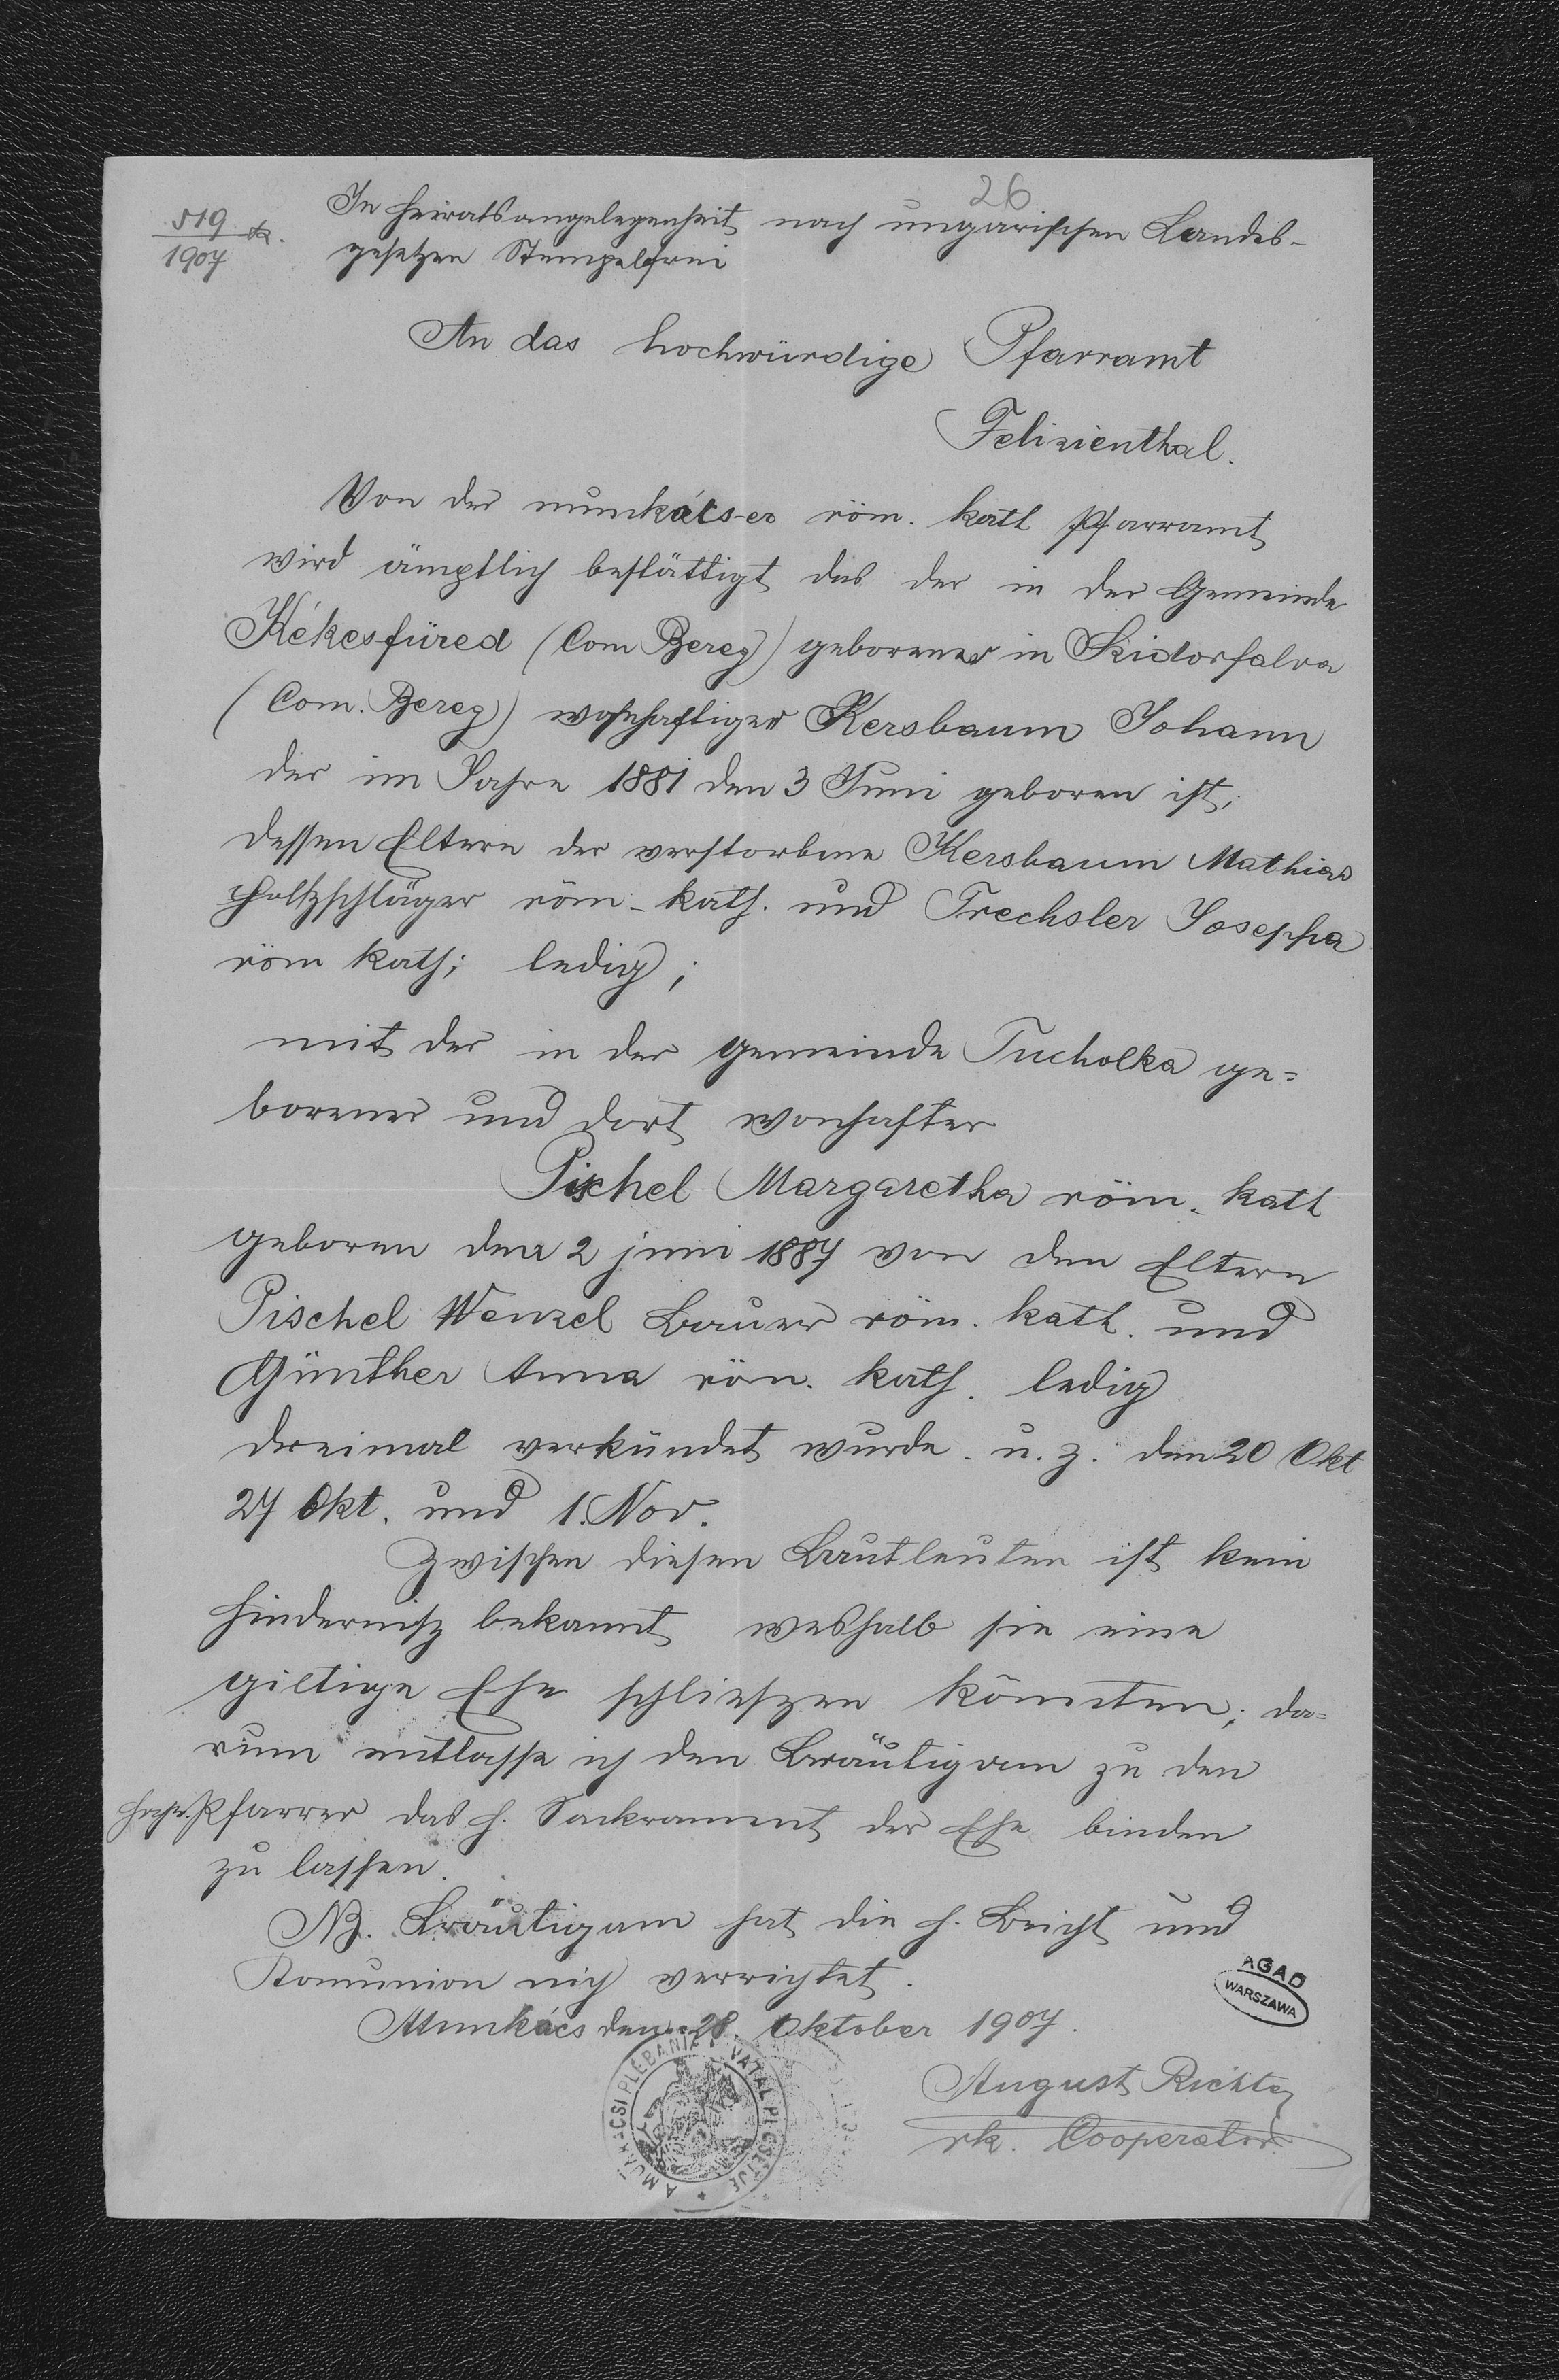 26
519 k.
1907
In Heiratsangelegenheit nach ungarischen Landes-
gesetzen Stempelfrei
An das hochwürdige Pfarramt
Felizienthal.
Von der munkácser röm. kath Pfarramt
wird ämptlich bestättigt das der in der Gemeinde
Kékesfüred (Com Bereg) geborener in Sidorfalva
(Com. Bereg) wohnhaftiger Kersbaum Johann
der im Jahre 1881 den 3 Juni geboren ist;
dessen Eltern der verstorbene Kersbaum Mathias
Holtzschläger röm. kath. und Trechsler Josepha
röm kath; ledig;
mit der in der Gemeinde Tucholka ge=
borener und dort wonhafter
Pischel Margaretha röm. kath
geboren den 2 juni 1887 von den Eltern
Pischel Wenzel Bauer röm. kath. und
Günther Anna röm. kath. ledig
dreimal verkündet wurde. u. z. den 20 Okt
27 Okt. und 1. Nov.
Zwischen diesen Brautleuten ist kein
Hindernisz bekannt weshalb sie eine
giltige Ehe schlieszen könnten; da=
rum entlasse ich den Bräutigam zu den
Pfarrer das h. Sackrament der Ehe binden
zu lassen.
NB. Bräutigam hat die h. Beicht und
Komunion nich verrichtet.
Munkács den 28. Oktober 1907.
AGAD
WARSZAWA
A MUNKÁCSI PLÉBÁNIA HIVATAL PECSÉTJE
August Richter
rk. Cooperator